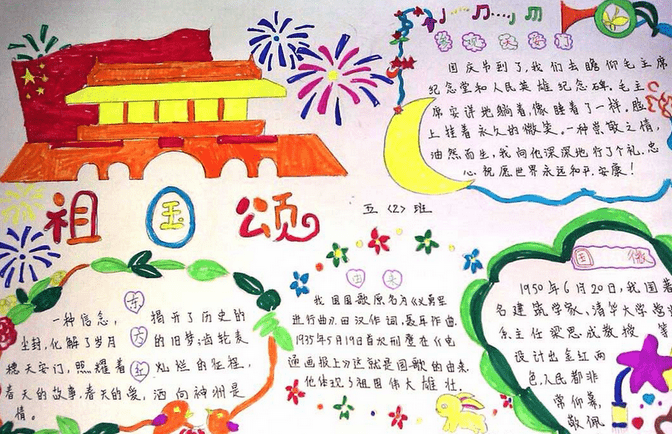 参观天安门
国庆节到了,我们去瞻仰毛主席
纪念堂和人民英雄纪念碑。毛主
席安详地躺着,像睡着了一样。脸
上挂着永久的微笑。一种崇敬之情,
油然而生,我向他深深地行了个礼,忠
心祝愿世界永远和平,安康!
祖国颂
五〈2〉班
东方红
一种信念,揭开了历史的
尘封,化解了岁月的旧梦;齿轮麦
穗天安门,照耀着灿烂的征程,
春天的故事,春天的爱,洒向神州是
情。
由来
我国国歌原名为《义勇军
进行曲》,田汉作词,聂耳作曲。
1935年5月19日首次刊登在《电
通画报上》这就是国歌的由来。
他体现了祖国伟大雄壮。
国徽
1950年6月20日,我国著
名建筑学家、清华大学
系主任梁思成教授
设计出金红两
色,人民都非
常仰慕,
敬佩